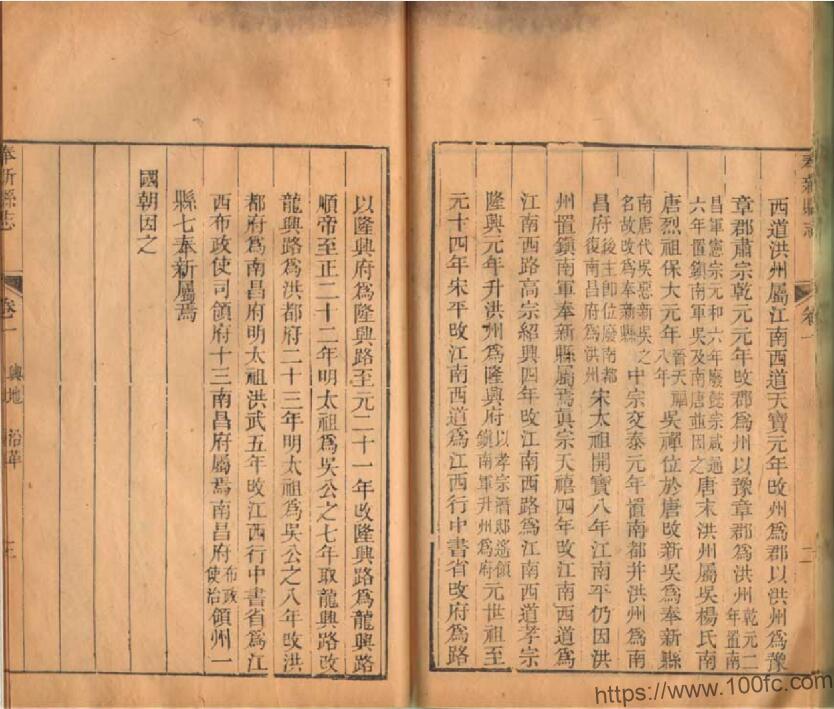 奉新縣志
卷一
二
西道洪州屬江南西道天寶元年攺州爲郡以洪州爲豫
章郡肅宗乾元元年攺郡爲州以豫章郡爲洪州乾元二年置南
昌軍憲宗元和六年廢懿宗咸通六年置鎮南軍吳及南唐並因之唐末洪州屬吳楊氏南
唐烈祖保大元年晋天福八年吳禪位於唐攺新吳爲奉新縣
南唐代吳惡新吳之名故改爲奉新縣中宗交泰元年置南都并洪州爲南
昌府後主卽位廢南都復南昌府爲洪州宋太祖開寶八年江南平仍因洪
州置鎮南軍奉新縣屬焉眞宗天禧四年攺江南西道爲
江南西路高宗紹興四年攺江南西路爲江南西道孝宗
隆興元年升洪州爲隆興府以孝宗潛邸遙領鎮南軍升州爲府元世祖至
元十四年宋平攺江南西道爲江西行中書省攺府爲路
以隆興府爲隆興路至元二十一年攺隆興路爲龍興路
順帝至正二十二年明太祖爲吳公之七年取龍興路改
龍興路爲洪都府二十三年明太祖爲吳公之八年攺洪
都府爲南昌府明太祖洪武五年攺江西行中書省爲江
西布政使司領府十三南昌府屬焉南昌府布政使治領州一
縣七奉新屬焉
國朝因之
奉新縣志
卷一
輿地 沿革
三
https://www.100fc.com